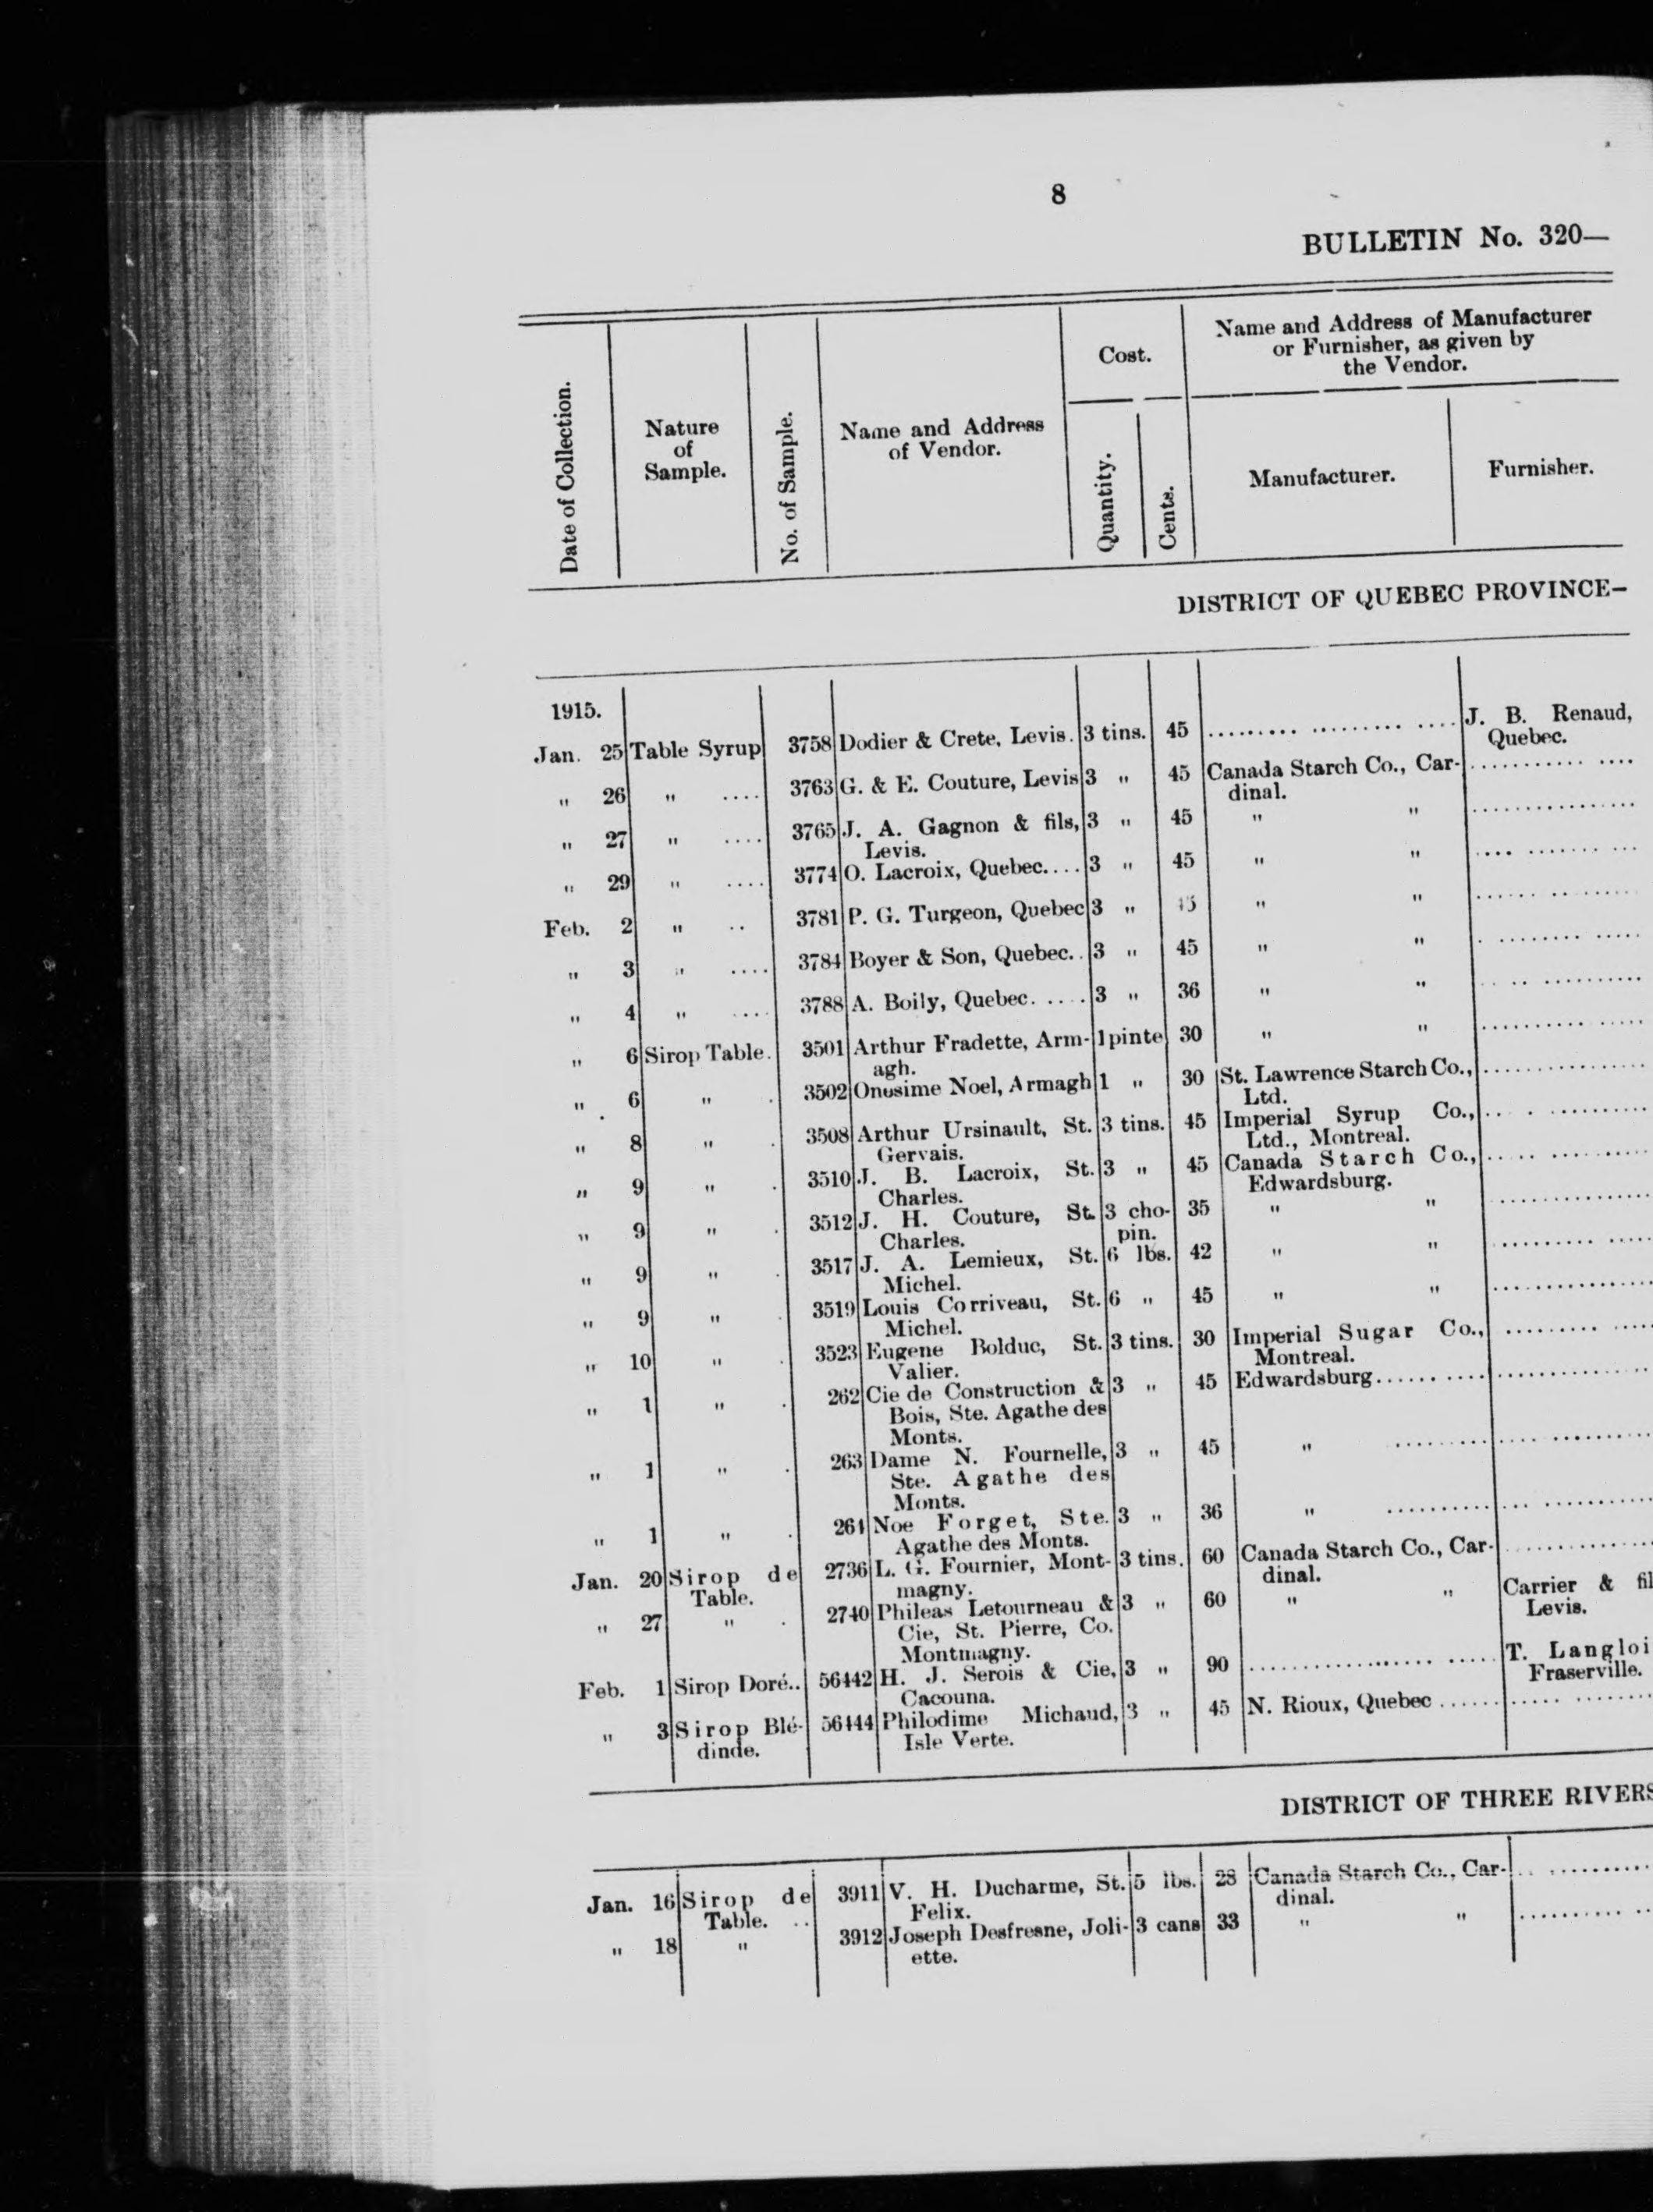 8
BULLETIN No. 320—
Date of Collection.
Nature
of
Sample.
No. of Sample.
Name and Address
of Vendor.
Cost.
Quantity.
Cents.
Name and Address of Manufacturer
or Furnisher, as given by
the Vendor.
Manufacturer.
Furnisher.
DISTRICT OF QUEBEC PROVINCE–
1915.
Jan. 25 Table Syrup 3758 Dodier & Crete, Levis. 3 tins. 45 .................... J. B. Renaud,
Quebec.
" 26 " .... 3763 G. & E. Couture, Levis 3 " 45 Canada Starch Co., Car- ...............
dinal.
" 27 " .... 3765 J. A. Gagnon & fils, 3 " 45 " " ................
Levis.
" 29 " .... 3774 O. Lacroix, Quebec.... 3 " 45 " " ..............
Feb. 2 " .. 3781 P. G. Turgeon, Quebec 3 " " " ...............
" 3 " .... 3784 Boyer & Son, Quebec.. 3 " 45 " " ..............
" 4 " .... 3788 A. Boily, Quebec..... 3 " 36 " " ..............
" 6 Sirop Table. 3501 Arthur Fradette, Arm- 1 pinte 30 " " ................
agh.
" 6 " . 3502 Onesime Noel, Armagh 1 " 30 St. Lawrence Starch Co., ................
Ltd.
" 8 " . 3508 Arthur Ursinault, St. 3 tins. 45 Imperial Syrup Co., ..............
Gervais. Ltd., Montreal.
" 9 " . 3510 J. B. Lacroix, St. 3 " 45 Canada Starch Co., ..............
Charles. Edwardsburg.
" 9 " . 3512 J. H. Couture, St. 3 cho- 35 " " ...............
Charles. pin.
" 9 " . 3517 J. A. Lemieux, St. 6 lbs. 42 " " ..............
Michel.
" 9 " . 3519 Louis Corriveau, St. 6 " 45 " " ................
Michel.
" 10 " . 3523 Eugene Bolduc, St. 3 tins. 30 Imperial Sugar Co., ..............
Valier. Montreal.
" 1 " . 262 Cie de Construction & 3 " 45 Edwardsburg.......... ................
Bois, Ste. Agathe des
Monts.
" 1 " . 263 Dame N. Fournelle, 3 " 45 " ......... ..............
Ste. Agathe des
Monts.
" 1 " . 264 Noe Forget, Ste. 3 " 36 " .......... ..............
Agathe des Monts.
Jan. 20 Sirop de 2736 L. G. Fournier, Mont- 3 tins. 60 Canada Starch Co., Car- ...............
Table. magny. dinal.
" 27 " . 2740 Phileas Letourneau & 3 " 60 " " Carrier & fil
Cie, St. Pierre, Co. Levis.
Montmagny.
Feb. 1 Sirop Doré.. 56442 H. J. Serois & Cie, 3 " 90 ..................... T. Langloi
Cacouna. Fraserville.
" 3 Sirop Blé- 56444 Philodime Michaud, 3 " 45 N. Rioux, Quebec...... .............
dinde. Isle Verte.
DISTRICT OF THREE RIVERS
Jan. 16 Sirop de 3911 V. H. Ducharme, St. 5 lbs. 28 Canada Starch Co., Car- ............
Table. .. Felix. dinal.
" 18 " 3912 Joseph Desfresne, Joli- 3 cans 33 " " ............
ette.